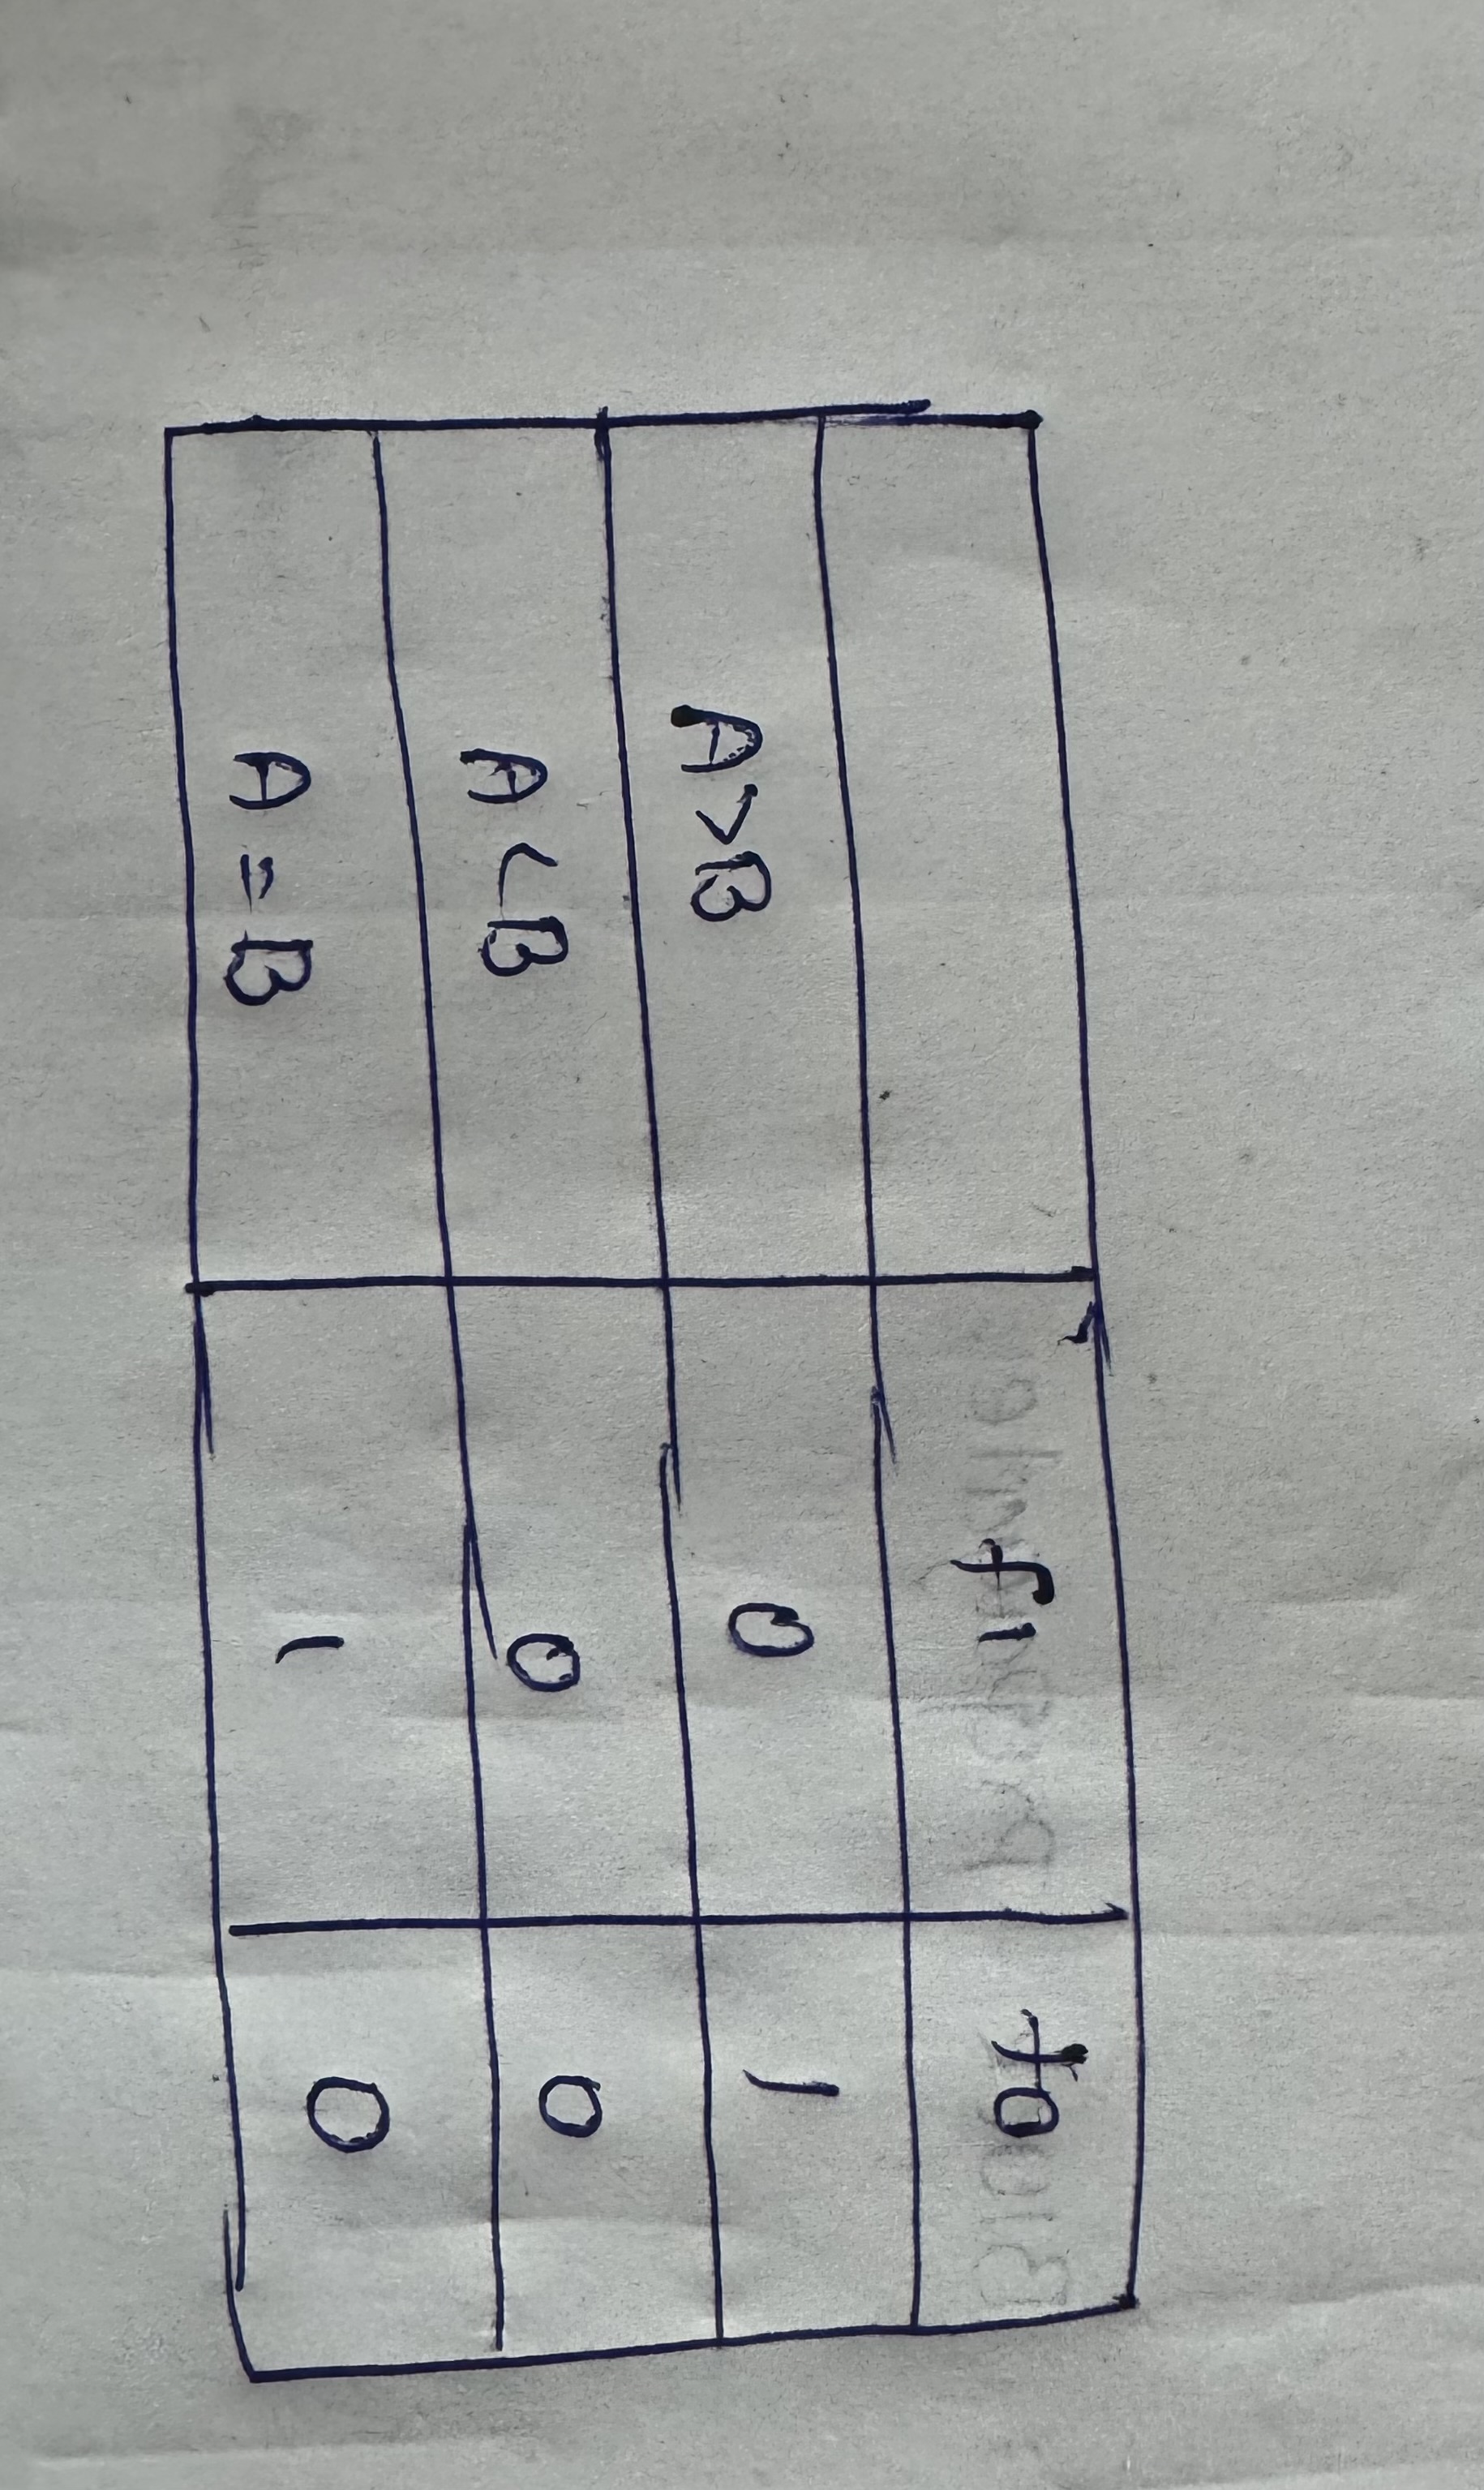 f1 f0
A>B 0 1
A<B 0 0
A=B 1 0